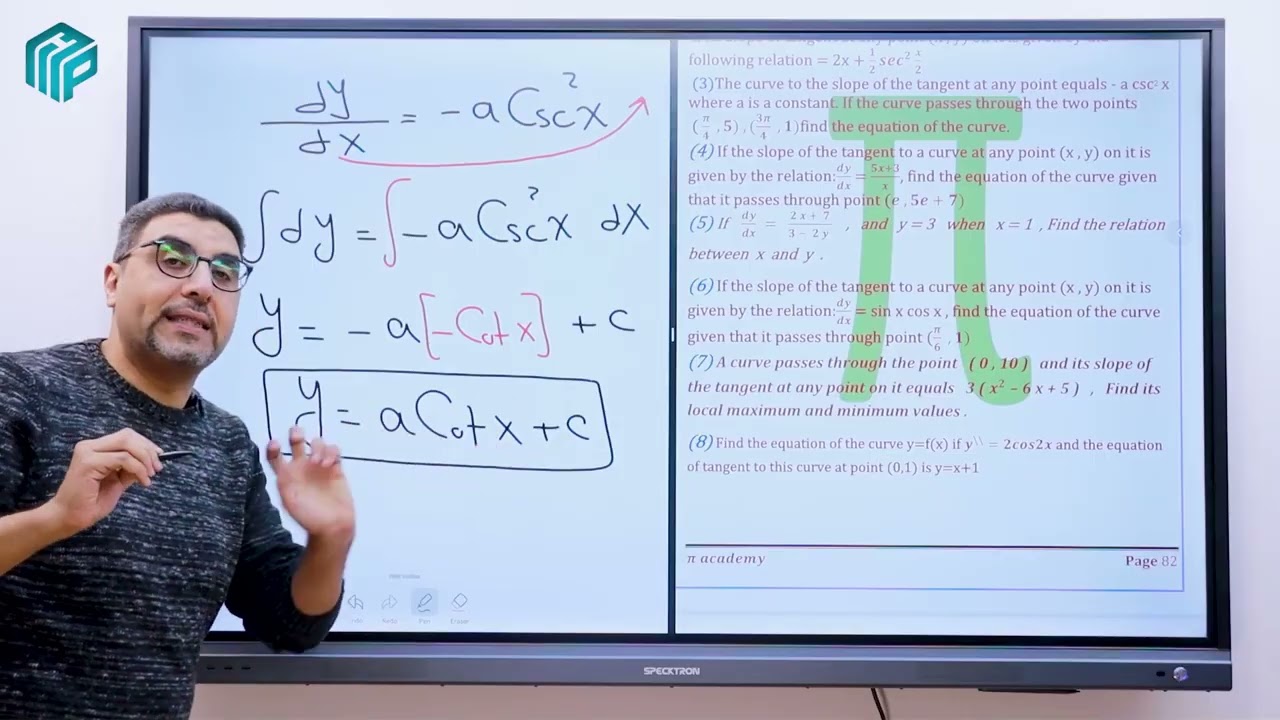 dy/dx = -a Csc²x
∫dy = ∫-a Csc²x dx
y = -a[-Cot x] + c
y = a Cot x + c
following relation = 2x + 1/2 sec² x/2
(3)The curve to the slope of the tangent at any point equals - a csc² x
where a is a constant. If the curve passes through the two points
(π/4 , 5) , (3π/4 , 1)find the equation of the curve.
(4) If the slope of the tangent to a curve at any point (x , y) on it is
given by the relation: dy/dx = 5x+3/x, find the equation of the curve given
that it passes through point (e , 5e + 7)
(5) If dy/dx = 2x + 7/3 - 2y , and y = 3 when x = 1 , Find the relation
between x and y .
(6) If the slope of the tangent to a curve at any point (x , y) on it is
given by the relation: dy/dx = sin x cos x , find the equation of the curve
given that it passes through point (π/6 , 1)
(7) A curve passes through the point (0 , 10) and its slope of
the tangent at any point on it equals 3 ( x² – 6 x + 5 ) , Find its
local maximum and minimum values .
(8) Find the equation of the curve y=f(x) if y\\ = 2cos2x and the equation
of tangent to this curve at point (0,1) is y=x+1
π academy
Page 82
Pen
Eraser
SPECKTRON